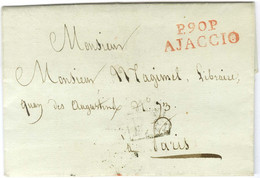 P.90.P
AJACCIO
Monsieur
Monsieur Magimel, Libraire,
quay des Augustins N° 33
à Paris